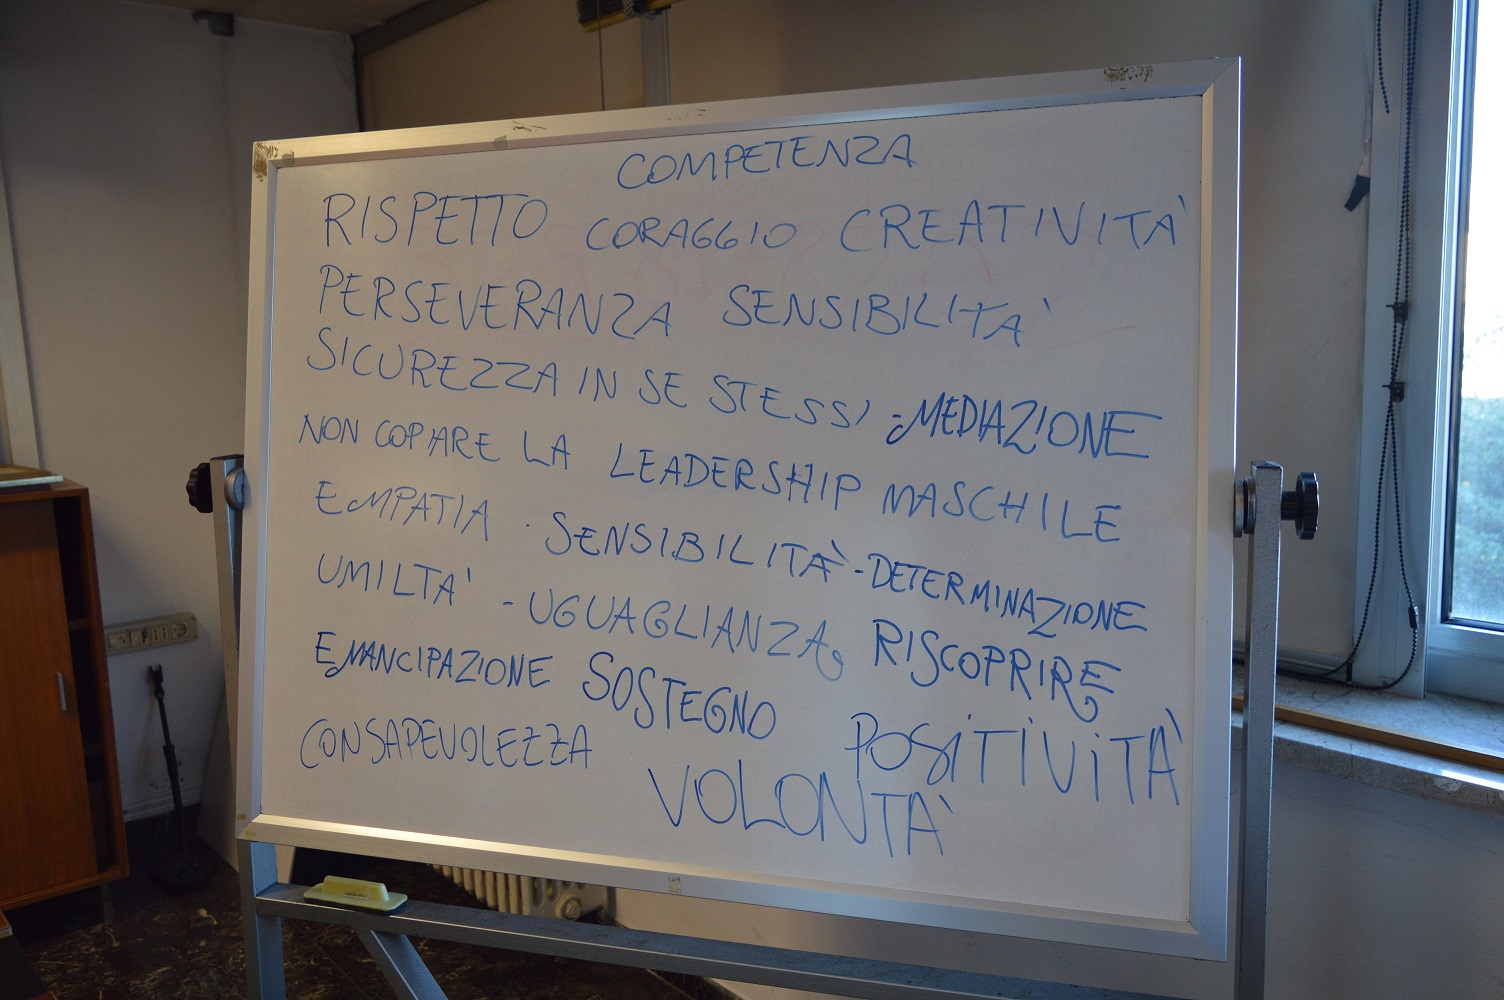 COMPETENZA
RISPETTO CORAGGIO CREATIVITÀ
PERSEVERANZA SENSIBILITÀ
SICUREZZA IN SE STESSI - MEDIAZIONE
NON COPIARE LA LEADERSHIP MASCHILE
EMPATIA · SENSIBILITÀ - DETERMINAZIONE
UMILTA' - UGUAGLIANZA, RISCOPRIRE
EMANCIPAZIONE SOSTEGNO
CONSAPEVOLEZZA POSITIVITÀ
VOLONTÀ